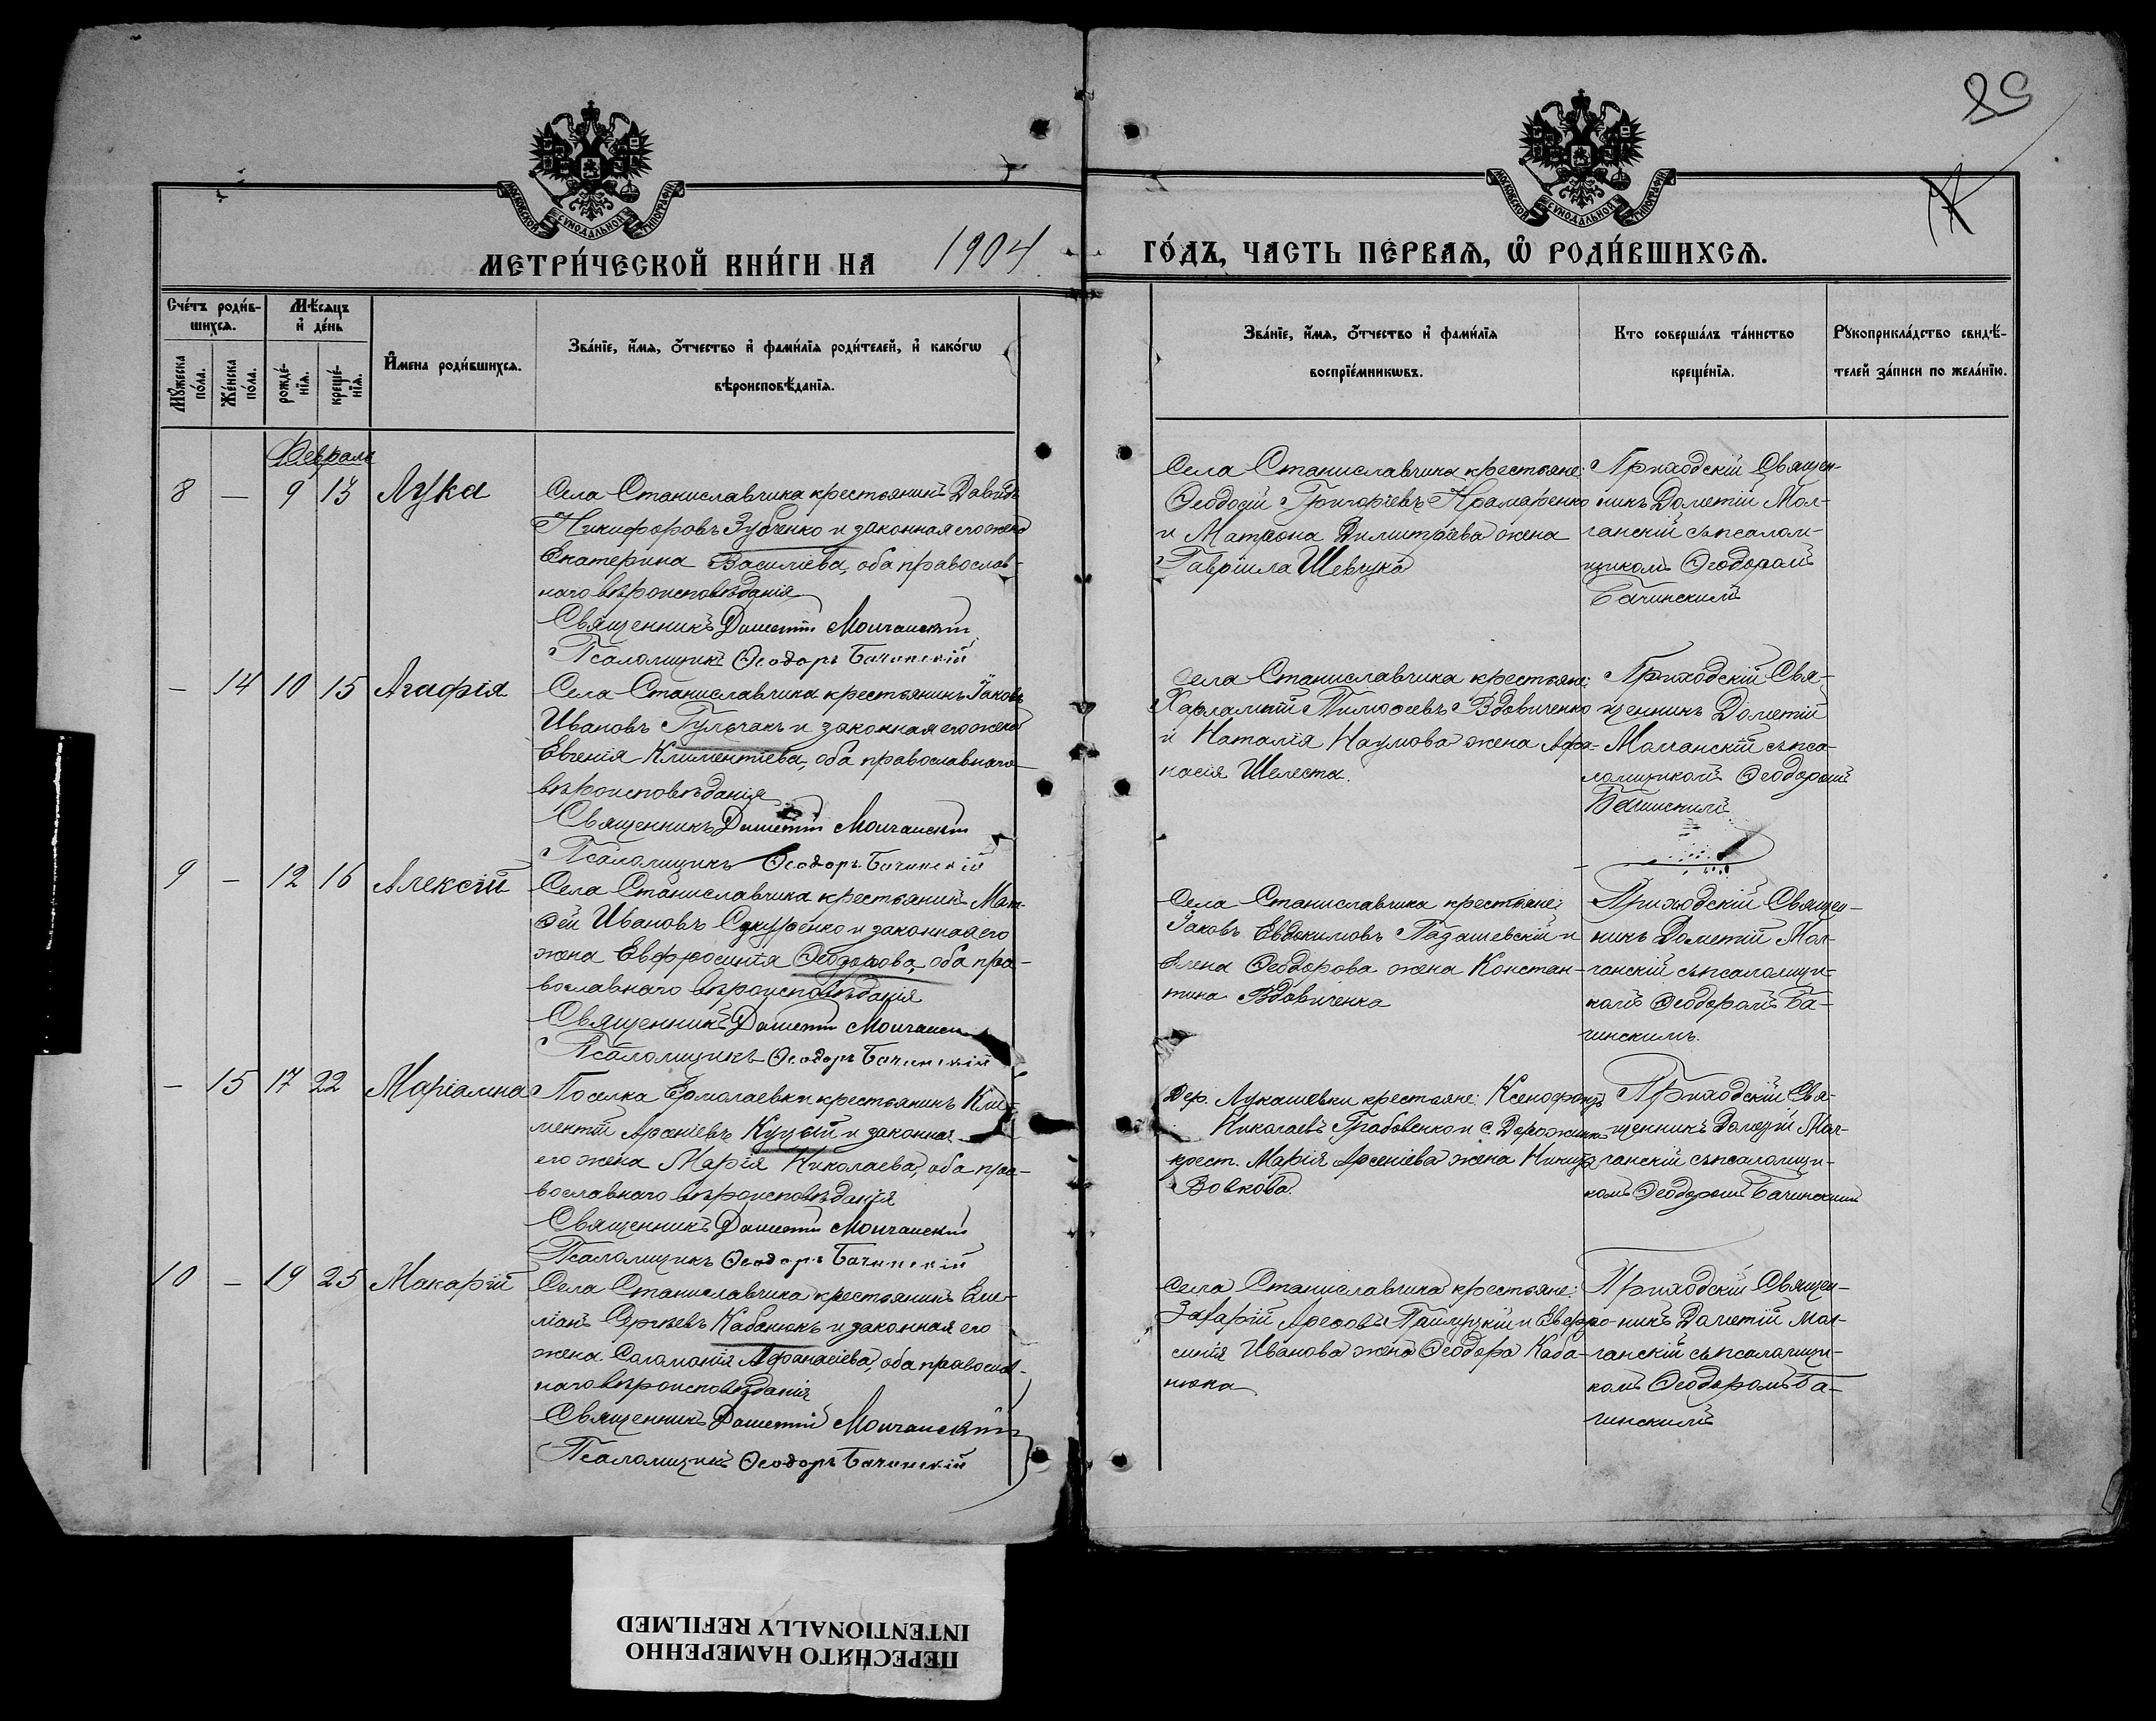 29
МОСКОВСКОЙ СѴНОДАЛЬНОЙ ТИПОГРАФІИ
МОСКОВСКОЙ СѴНОДАЛЬНОЙ ТИПОГРАФІИ
МЕТРИ́ЧЕСКОЙ КНИ́ГИ НА 1904
ГО́ДЪ, ЧАСТЬ ПЕ́РВАѦ, Ѡ҆ РОДИ́ВШИХСѦ.
Сче́тъ роди́вшихсѧ.
Мꙋ́жеска по́ла.
Же́нска по́ла.
Мѣ́сѧцъ и҆ де́нь
рожде́нїѧ.
креще́нїѧ.
И҆мена роди́вшихсѧ.
Зва́нїе, и҆́мѧ, ѻ҆́тчество и҆ фами́лїѧ роди́телей, и҆ како́гѡ
вѣроисповѣ́данїѧ.
Зва́нїе, и҆́мѧ, ѻ҆́тчество и҆ фами́лїѧ
воспрїе́мникѡвъ.
Кто соверша́лъ та́инство
креще́нїѧ.
Рꙋкоприкла́дство свидѣ́-
телей за́писи по жела́нїю.
Февраль
8 — 9 13 Лука
Села Станиславчика крестьянинъ Давидъ
Никифоровъ Зубченко и законная его жена
Екатерина Василіева, оба православ-
наго вѣроисповѣданія
Священникъ Дометій Молчанскій
Псаломщикъ Ѳеодоръ Бачинскій
Села Станиславчика крестьяне:
Ѳеодосій Григоріевъ Крамаренко
и Матрона Димитріева жена
Гавріила Шевчука
Приходскій Священ-
никъ Дометій Мол-
чанскій съ псалом-
щикомъ Ѳеодоромъ
Бачинскимъ
— 14 10 15 Агафія
Села Станиславчика крестьянинъ Іаковъ
Ивановъ Гульчакъ и законная его жена
Евгенія Климентіева, оба православнаго
вѣроисповѣданія
Священникъ Дометій Молчанскій
Псаломщикъ Ѳеодоръ Бачинскій
Села Станиславчика крестьяне:
Харлампій Тимоѳеевъ Вдовиченко
и Наталія Наумова жена Афа-
насія Шелеста.
Приходскій Свя-
щенникъ Дометій
Молчанскій съ пса-
ломщикомъ Ѳеодоромъ
Бачинскимъ
9 — 12 16 Алексій
Села Станиславчика крестьянинъ Мат-
ѳей Ивановъ и законная его
жена Евфросинія Ѳеодорова, оба пра-
вославнаго вѣроисповѣданія
Священникъ Дометій Молчанскій
Псаломщикъ Ѳеодоръ Бачинскій
Села Станиславчика крестьяне:
Іаковъ Евдокимовъ и
Елена Ѳеодорова жена Констан-
тина Вдовиченка
Приходскій Священ-
никъ Дометій Мол-
чанскій съ псаломщи-
комъ Ѳеодоромъ Ба-
чинскимъ.
— 15 17 22 Маріамна
Поселка Ермолаевки крестьянинъ Кли-
ментій Арсеніевъ Куцый и законная
его жена Марія Николаева, оба пра-
вославнаго вѣроисповѣданія
Священникъ Дометій Молчанскій
Псаломщикъ Ѳеодоръ Бачинскій
Дер. Лукашевки крестьяне: Ксенофонтъ
Николаевъ Грабовенко и с.
крест. Марія Арсеніева жена Никиты
Вовкова.
Приходскій Свя-
щенникъ Дометій Мол-
чанскій съ псаломщи-
комъ Ѳеодоромъ Бачинскимъ
10 — 19 25 Макарій
Села Станиславчика крестьянинъ Еми-
ліанъ Сергѣевъ Кабанюкъ и законная его
жена Саломонія Афанасіева, оба православ-
наго вѣроисповѣданія
Священникъ Дометій Молчанскій
Псаломщикъ Ѳеодоръ Бачинскій
Села Станиславчика крестьяне:
Захарій и Евфро-
синія Иванова жена Ѳеодора Каба-
нюка
Приходскій Священ-
никъ Дометій Мол-
чанскій съ псаломщи-
комъ Ѳеодоромъ Ба-
чинскимъ
ПЕРЕСНЯТО НАМЕРЕННО
INTENTIONALLY REFILMED